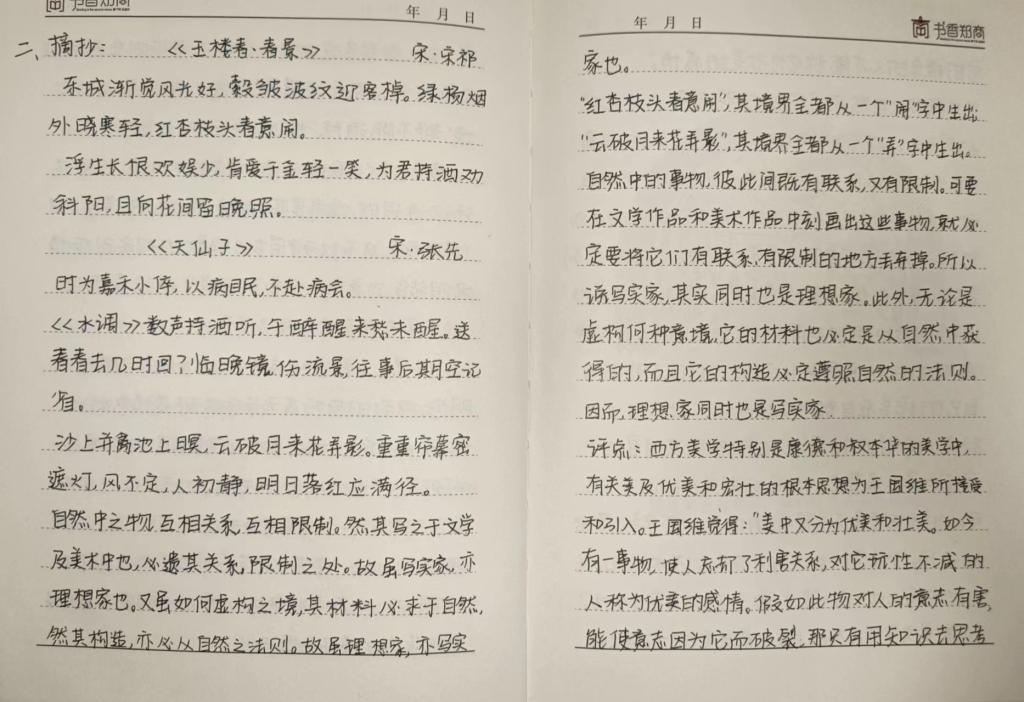 书香知商
年 月 日
二、摘抄：《玉楼春·春景》 宋·宋祁
东城渐觉风光好，縠皱波纹迎客棹。绿杨烟
外晓寒轻，红杏枝头春意闹。
浮生长恨欢娱少，肯爱千金轻一笑，为君持酒劝
斜阳，且向花间留晚照。
《天仙子》 宋·张先
时为嘉禾小倅，以病眠，不赴府会。
《水调》数声持酒听，午醉醒来愁未醒。送
春春去几时回？临晚镜，伤流景，往事后期空记
省。
沙上并禽池上暝，云破月来花弄影。重重帘幕密
遮灯，风不定，人初静，明日落红应满径。
自然中之物，互相关系，互相限制。然其写之于文学
及美术中也，必遗其关系，限制之处。故虽写实家，亦
理想家也。又虽如何虚构之境，其材料必求于自然，
然其构造，亦必从自然之法则。故虽理想家，亦写实
年 月 日
书香知商
家也。
“红杏枝头春意闹”，其境界全都从一个“闹”字中生出；
“云破月来花弄影”，其境界全都从一个“弄”字中生出。
自然中的事物，彼此间既有联系，又有限制。可要
在文学作品和美术作品中刻画出这些事物，就必
定要将它们有联系、有限制的地方丢弃掉。所以
说写实家，其实同时也是理想家。此外，无论是
虚构何种意境，它的材料也必定是从自然中获
得的，而且它的构造必定遵照自然的法则。
因而，理想家同时也是写实家
评点：西方美学特别是康德和叔本华的美学中，
有关美及优美和宏壮的根本思想为王国维所接受
和引入。王国维觉得：“美中又分为优美和壮美。如今
有一事物，使人忘却了利害关系，对它玩性不减的
人称为优美的感情。假如此物对人的意志有害，
能使意志因为它而破裂，那只有用知识去思考